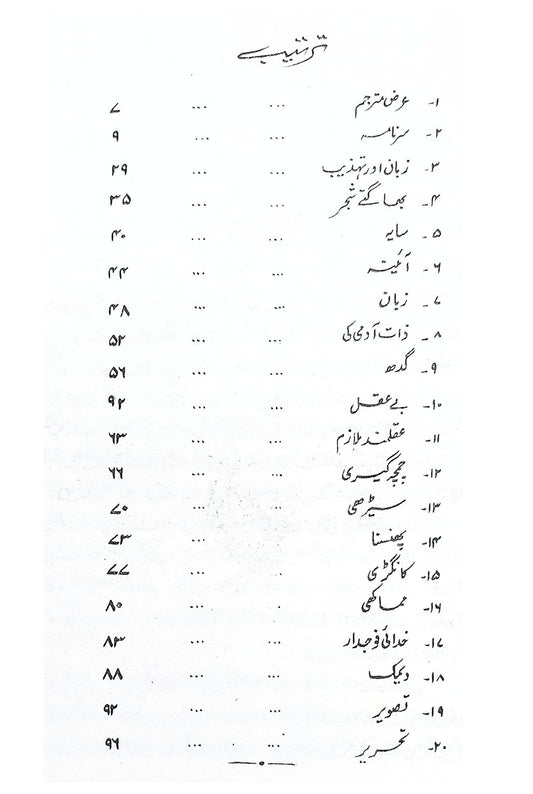 ترتیب
۱۔ عرض مترجم ... ... ۷
۲۔ سرنامہ ... ... ۹
۳۔ زبان اور تہذیب ... ... ۲۹
۴۔ بھاگتے شجر ... ... ۳۵
۵۔ سایہ ... ... ۴۰
۶۔ آئینہ ... ... ۴۴
۷۔ زبان ... ... ۴۸
۸۔ ذات آدمی کی ... ... ۵۲
۹۔ گدھ ... ... ۵۶
۱۰۔ بے عقل ... ... ۹۲
۱۱۔ عقلمند ملازم ... ... ۶۳
۱۲۔ چمچہ گیری ... ... ۶۶
۱۳۔ سیڑھی ... ... ۷۰
۱۴۔ پھنسنا ... ... ۷۳
۱۵۔ کانگڑی ... ... ۷۷
۱۶۔ مماکھی ... ... ۸۰
۱۷۔ خدائی فوجدار ... ... ۸۳
۱۸۔ دیمک ... ... ۸۸
۱۹۔ تصویر ... ... ۹۲
۲۰۔ تحریر ... ... ۹۶